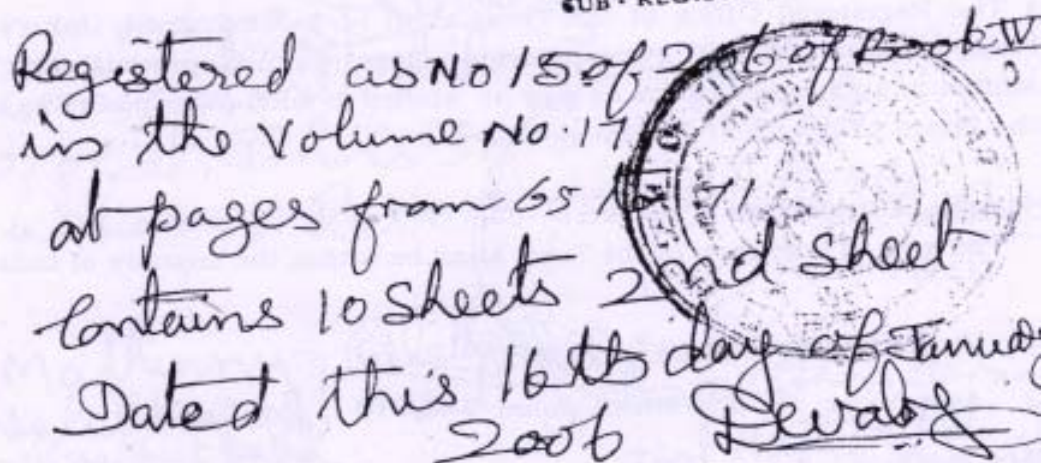 SUB - REGIS
Registered as No 15 of 2006 of Book IV
in the Volume No. 17
at pages from 65 to 71
Contains 10 Sheets 2nd Sheet
Dated this 16th day of January
2006